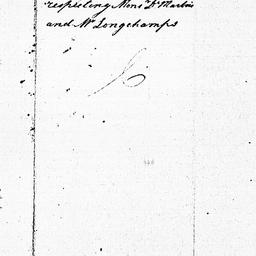 respecting Monsr. D Marbois
and Mr Longchamps